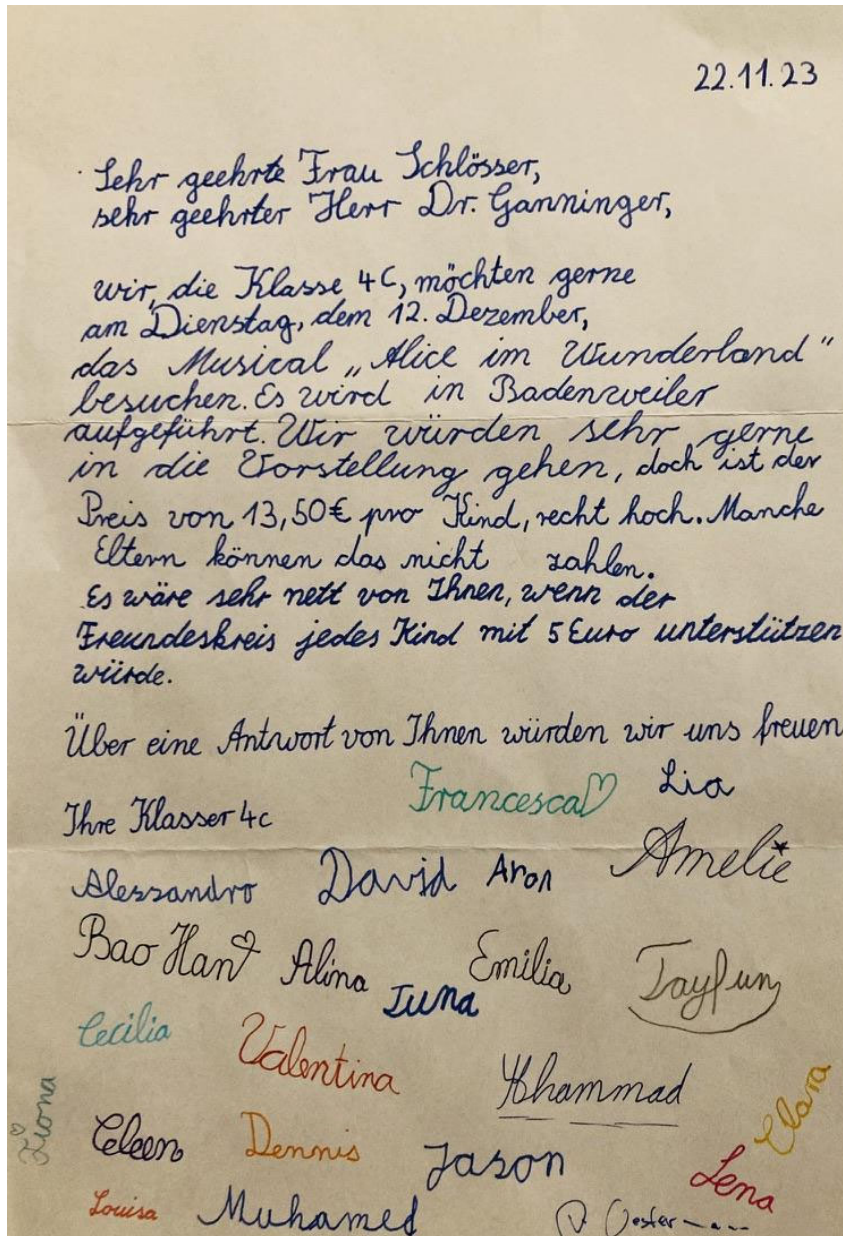 22.11.23
Sehr geehrte Frau Schlösser,
sehr geehrter Herr Dr. Ganninger,
wir, die Klasse 4C, möchten gerne
am Dienstag, dem 12. Dezember,
das Musical „Alice im Wunderland"
besuchen. Es wird in Badenweiler
aufgeführt. Wir würden sehr gerne
in die Vorstellung gehen, doch ist der
Preis von 13,50€ pro Kind, recht hoch. Manche
Eltern können das nicht zahlen.
Es wäre sehr nett von Ihnen, wenn der
Freundeskreis jedes Kind mit 5 Euro unterstützen
würde.
Über eine Antwort von Ihnen würden wir uns freuen
Francesca Lia
Ihre Klasser 4c
Alessandro David Aron Amelie
Bao Han Alina Emilia Tayfun
Tuna
Cecilia Valentina
Fiona Clara
Celeen Dennis Jason Lena
Louisa Muhamed